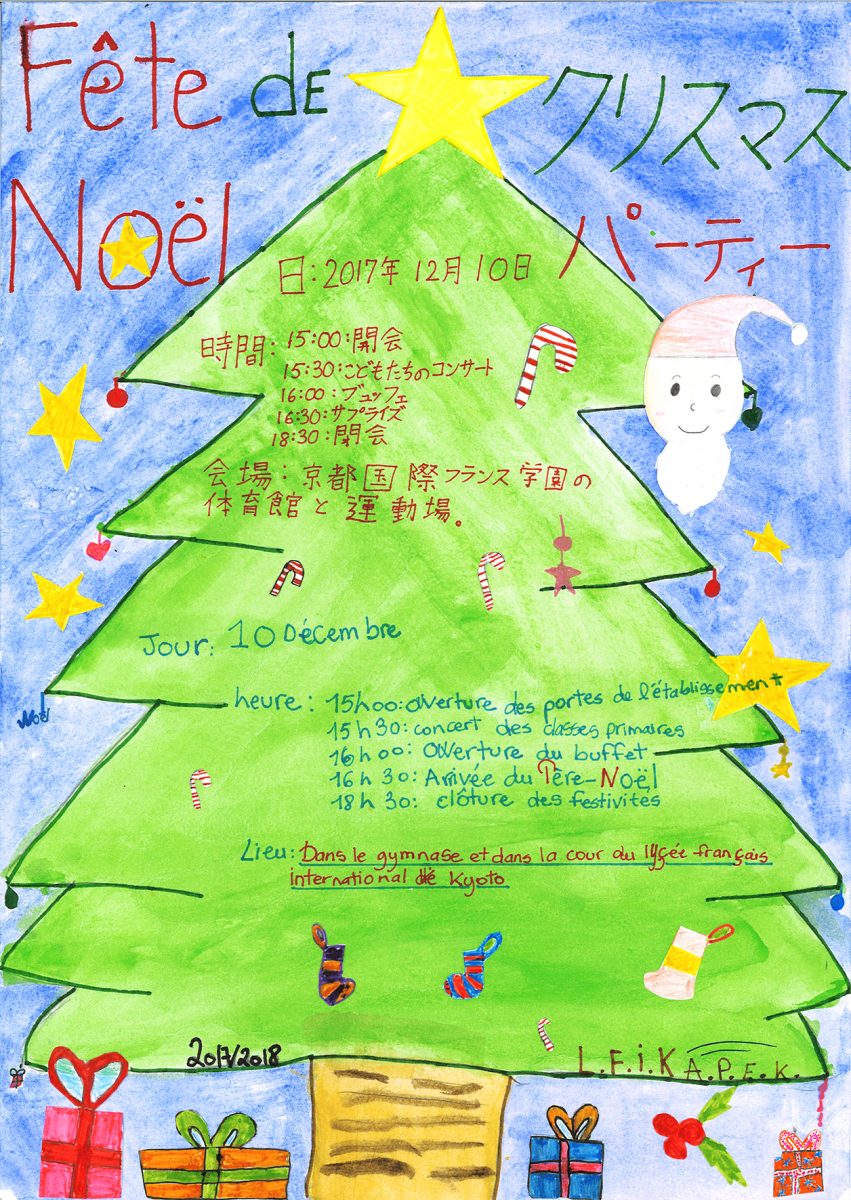 Fête de
クリスマス
Noël
パーティー
日:2017年 12月 10日
時間: 15:00:開会
15:30:こどもたちのコンサート
16:00:ブュッフェ
16:30:サプライズ
18:30:閉会
会場:京都国際フランス学園の
体育館と運動場。
Jour: 10 Décembre
heure: 15h00: Ouverture des portes de l'établissement
15h30: concert des classes primaires
16h00: Ouverture du buffet
16h30: Arrivée du Père-Noël
18h30: clôture des festivités
Lieu: Dans le gymnase et dans la cour du lycée français
international de Kyoto
Noël
2017/2018
L.F.i.K A.P.E.K.